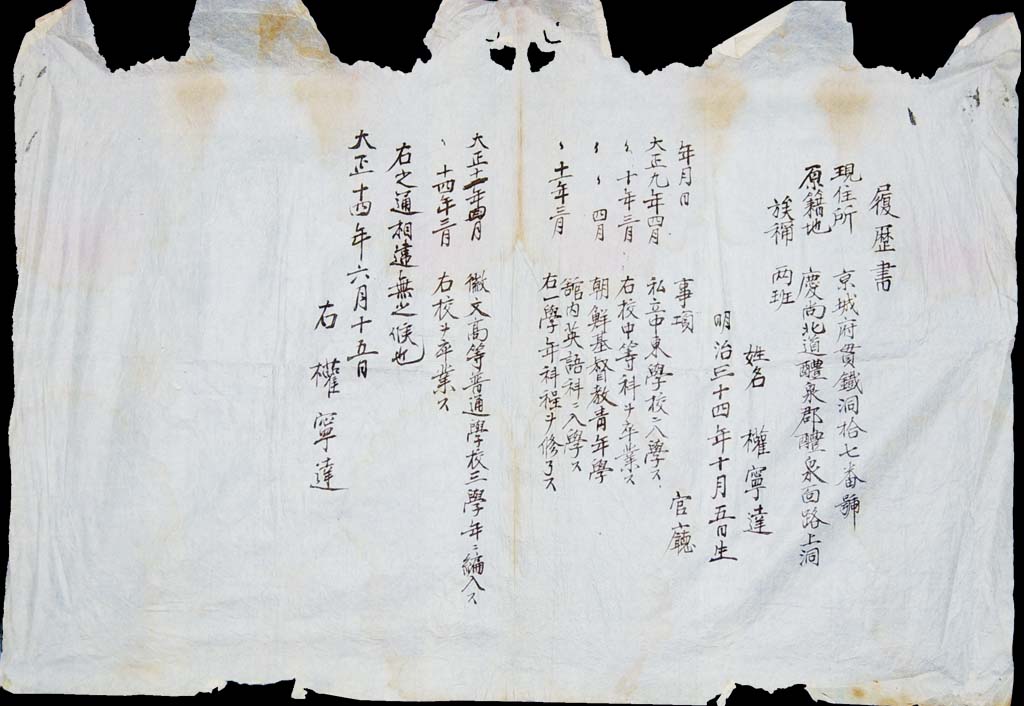 履歷書
現住所 京城府貫鐵洞拾七番號
原籍地 慶尙北道醴泉郡醴泉面路上洞
族稱 両班
姓名 權寧達
明治三十四年十月五日生
年月日 事項 官廳
大正九年四月 私立中東學校ニ入學ス
〃 十年三月 右校中等科ヲ卒業ス
〃 〃 四月 朝鮮基督敎靑年學
舘內英語科ニ入學ス
〃 十一年三月 右一學年科程ヲ修了ス
大正十二年四月 徽文高等普通學校三學年ニ編入ス
〃 十四年三月 右校ヲ卒業ス
右之通相違無之候也
大正十四年六月十五日
右 權寧達